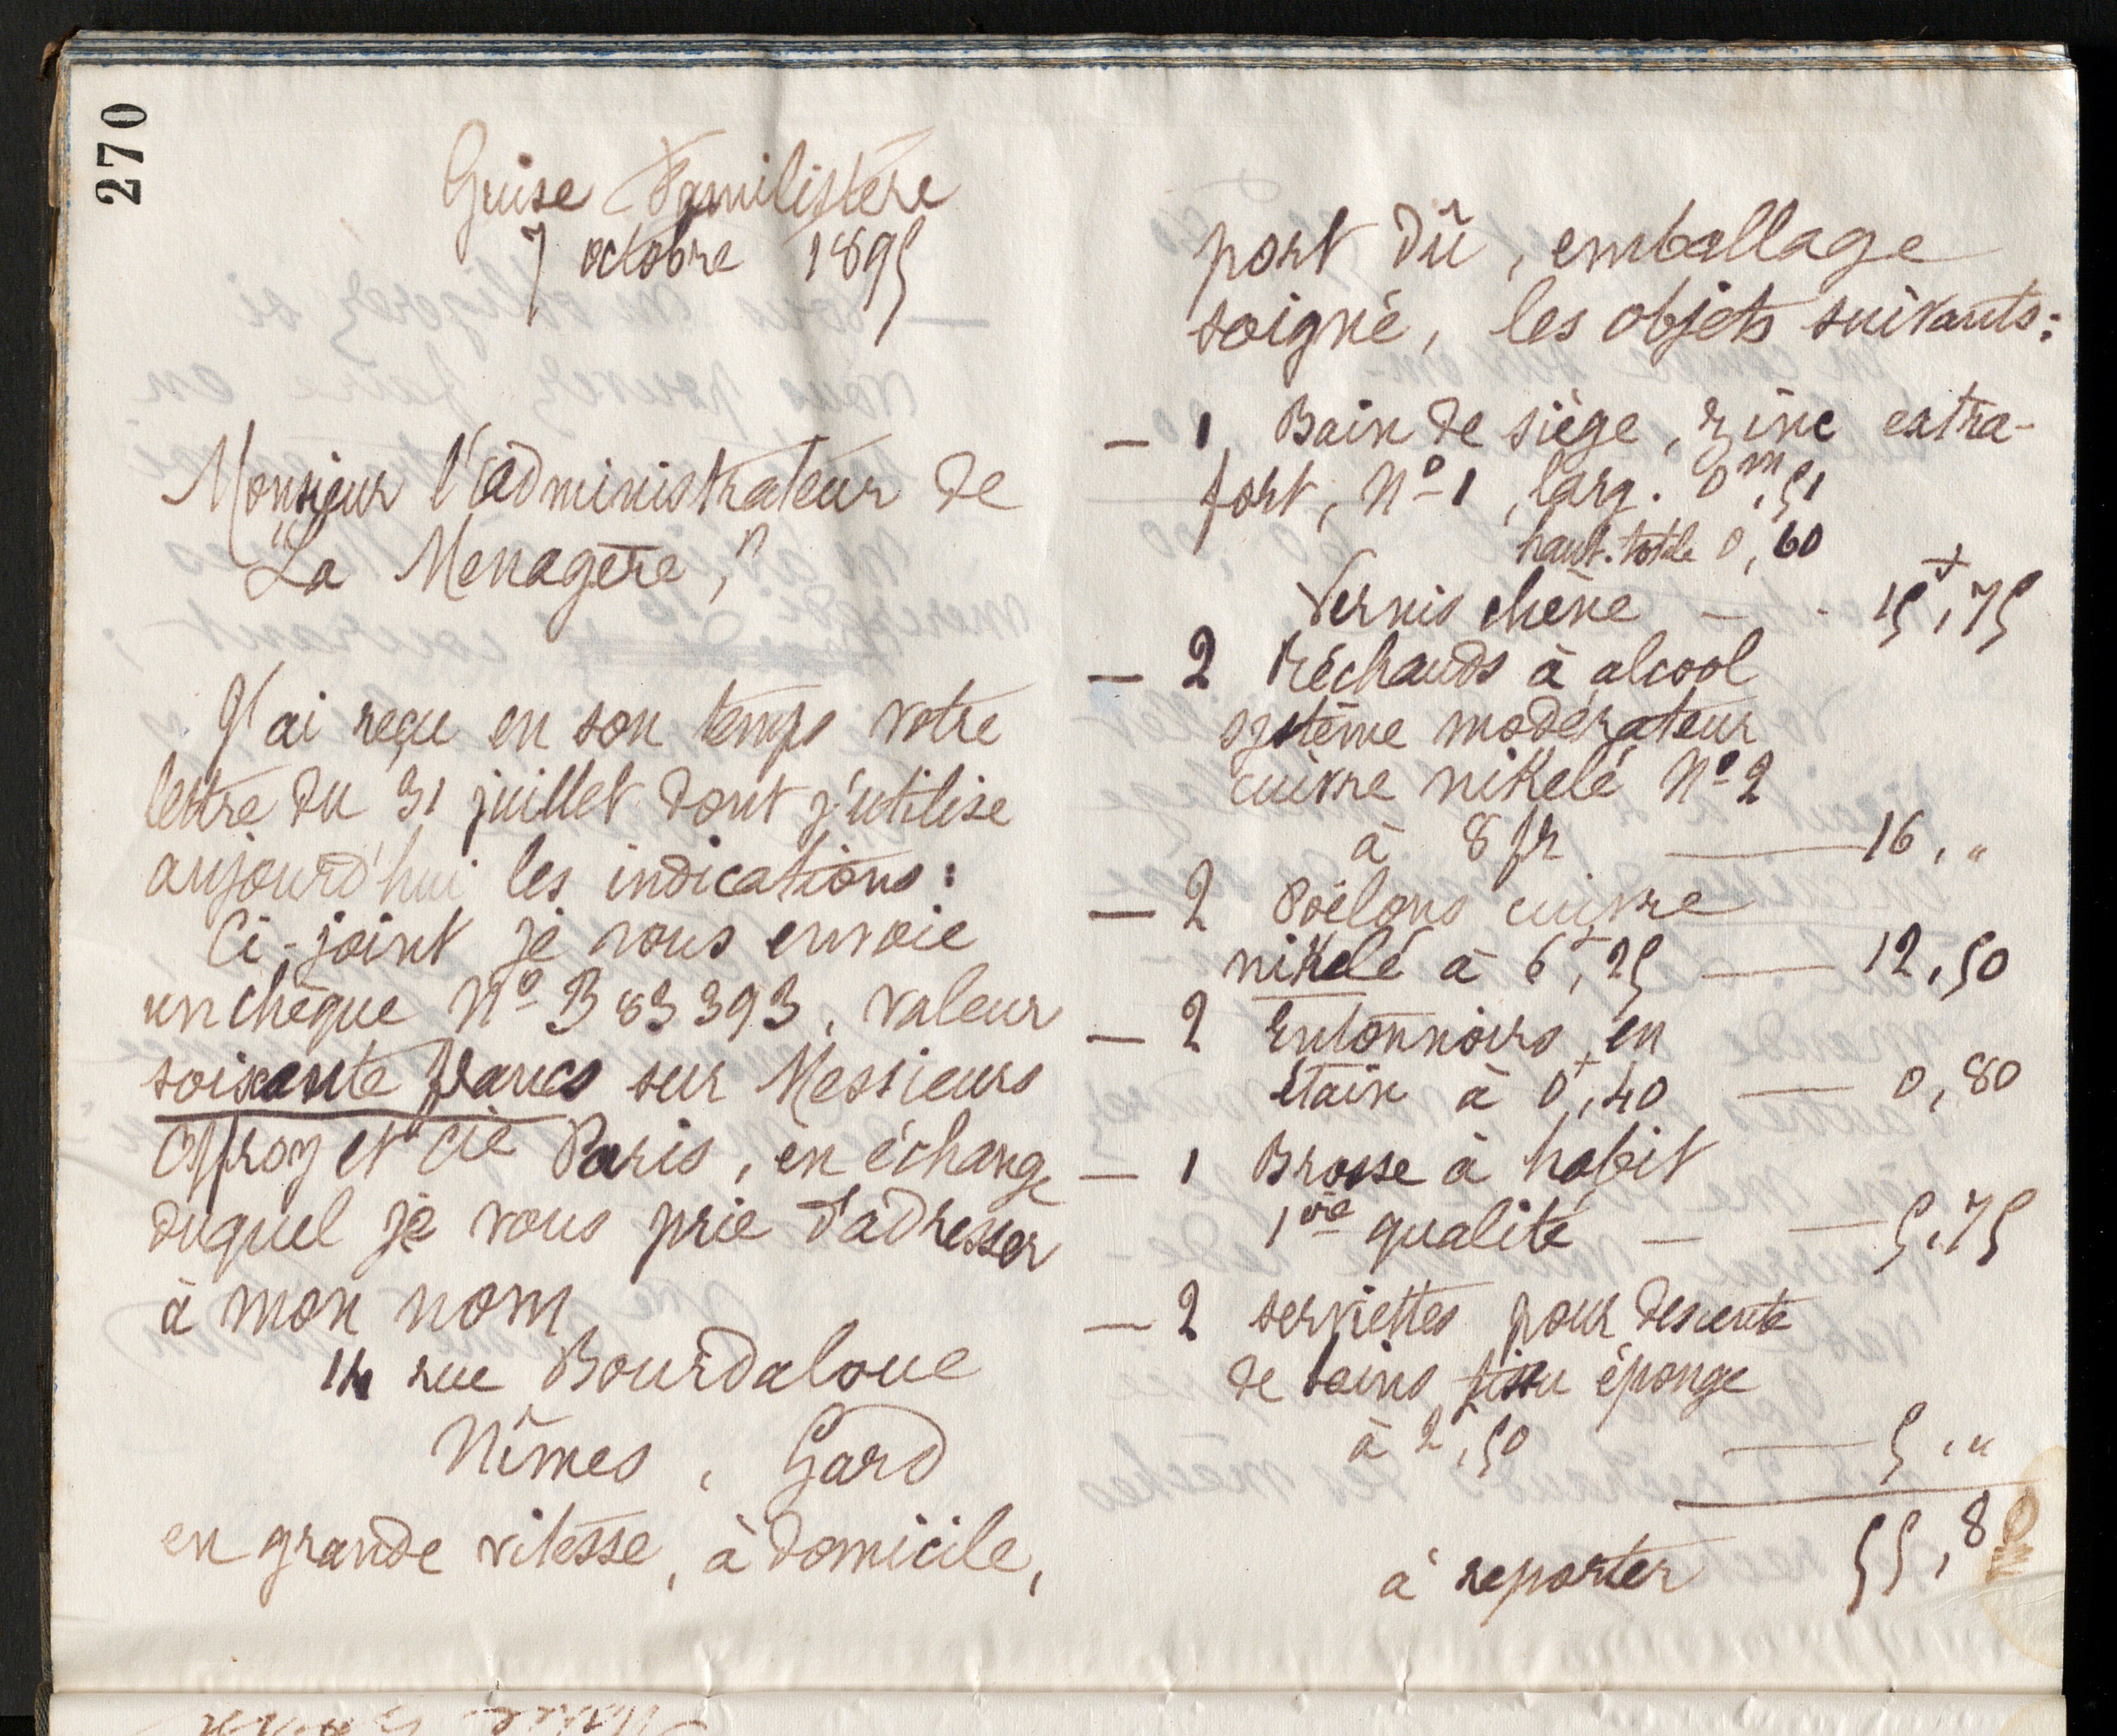 270
Guise Familistère
7 octobre 1895
Monsieur l'administrateur de
"La Menagère,"
J'ai reçu en son temps votre
lettre du 31 juillet dont j'utilise
aujourd'hui les indications :
Ci-joint je vous envoie
un chèque Nº B 83393, valeur
soixante francs sur Messieurs
Offroy et Cie Paris, en échange
duquel je vous prie d'adresser
à mon nom
14 rue Bourdaloue
Nîmes, Gard
en grande vitesse, à domicile,
port dû, emballage
soigné, les objets suivants :
— 1 Bain de siège, zinc extra-
fort, Nº 1, larg. 0m,51
haut. totale 0,60
Vernis chêne — - 15f,75
— 2 Réchauds à alcool
système modérateur
cuivre nikelé Nº 2
à 8 fr — 16, "
— 2 Poëlons cuivre
nikelé à 6f,25 — 12,50
— 2 Entonnoirs en
étain à 0f,40 — 0,80
— 1 Brosse à habit
1re qualité — — 5,75
— 2 serviettes pour descente
de bains tissu éponge
à 2f,50 — 5, "
à reporter 55,80